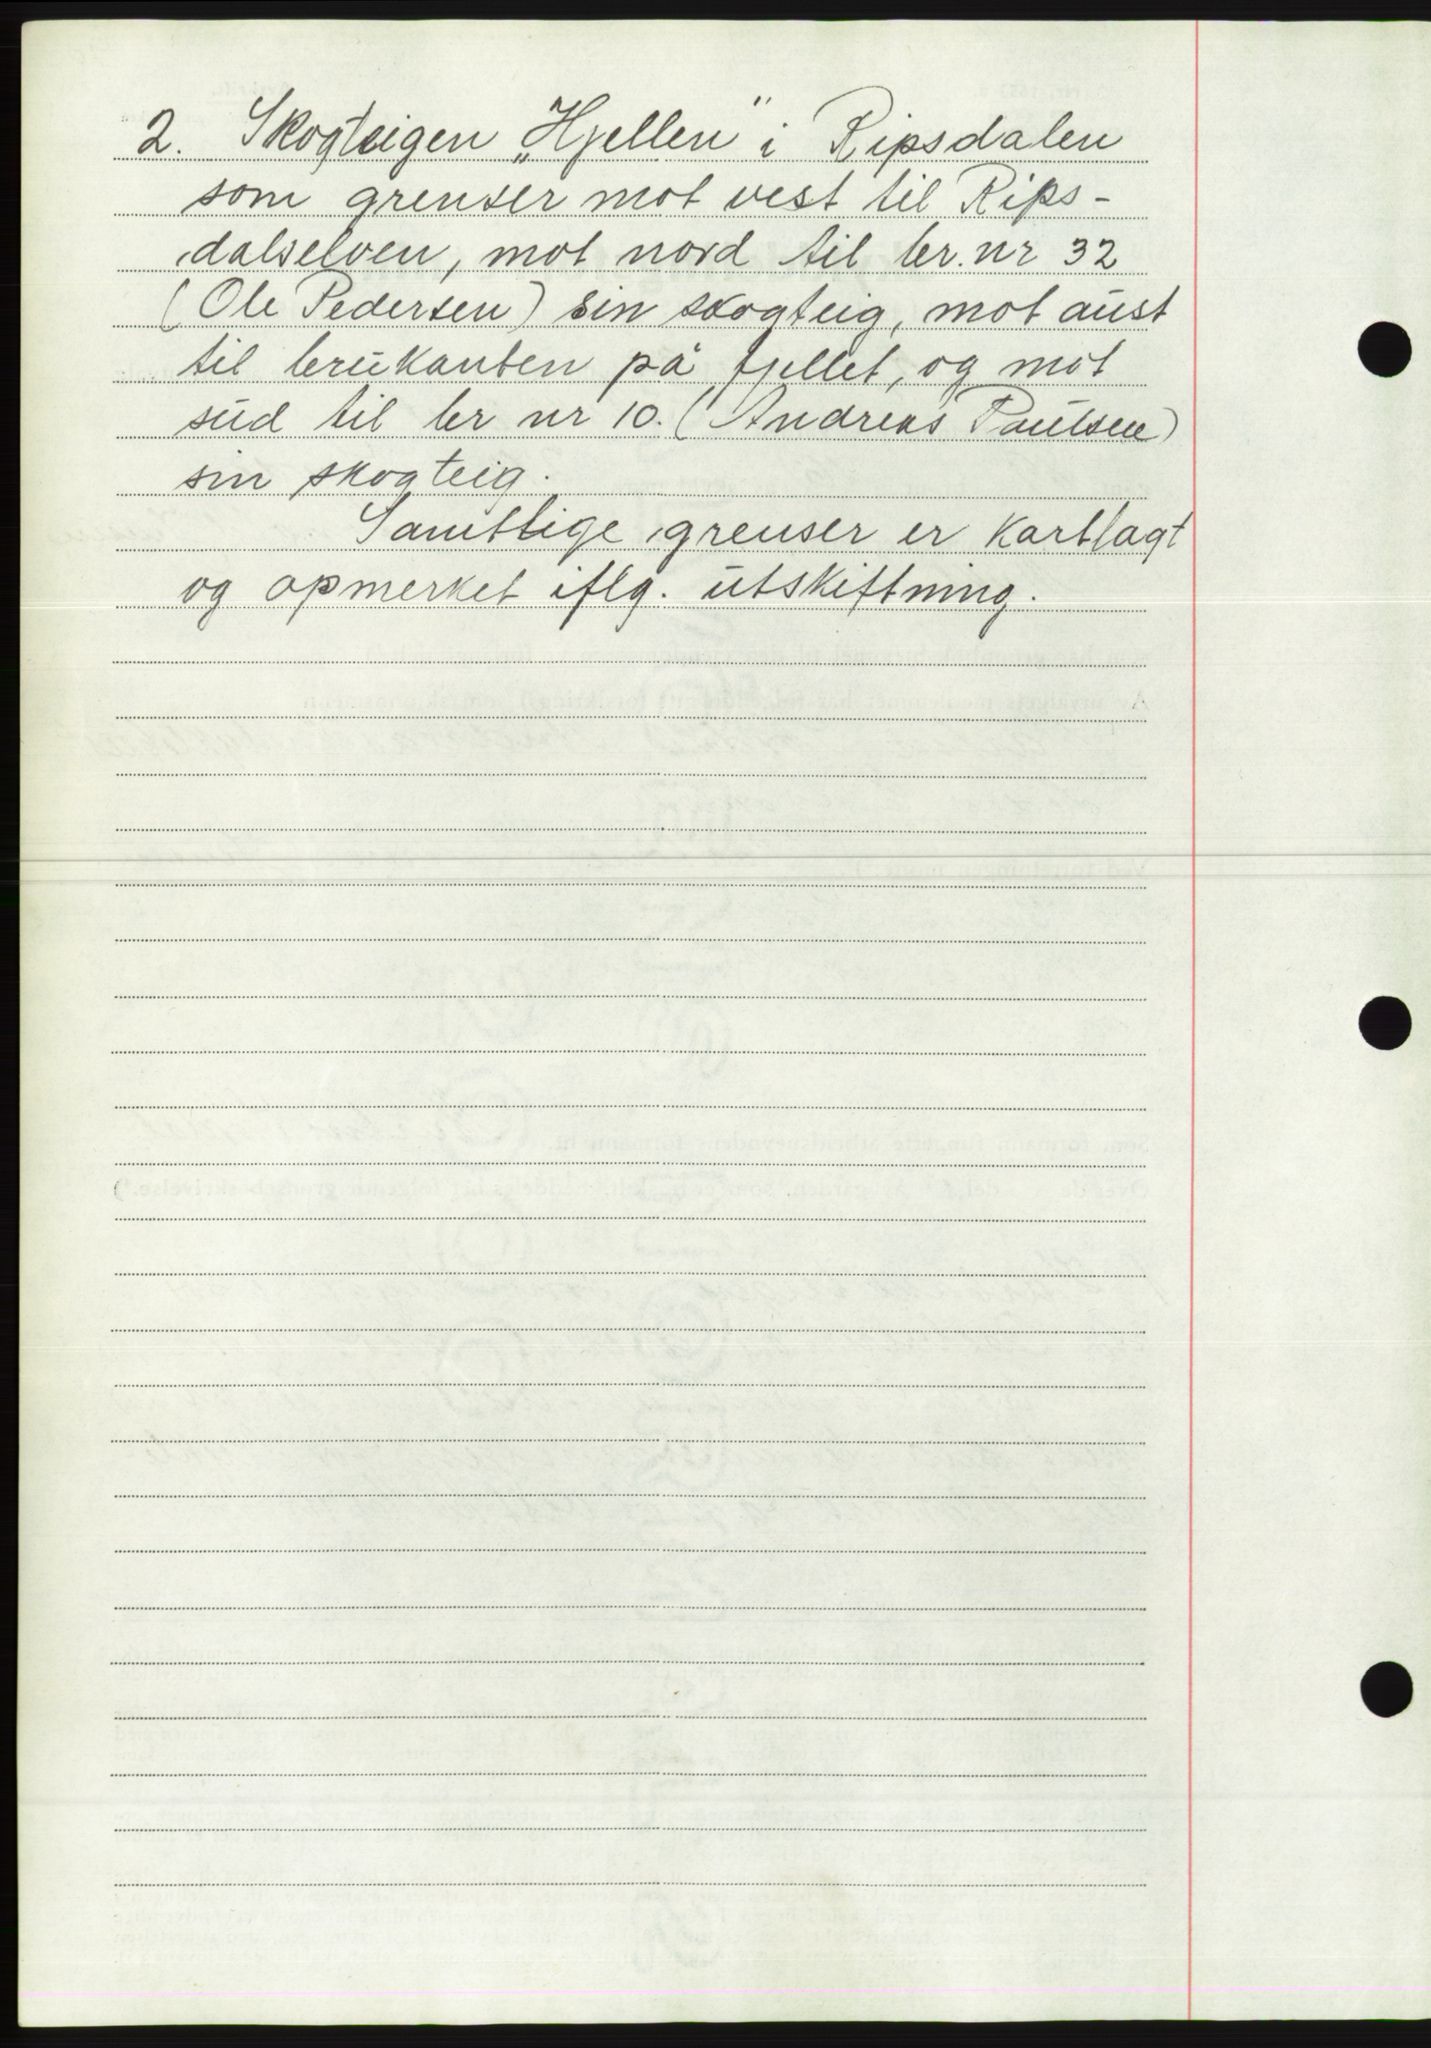 2. Skogteigen „Hjellen" i Ripsdalen
som grenser mot vest til Rips-
dalselven, mot nord til br. nr 32
(Ole Pedersen) sin skogteig, mot aust
til brukanten på fjellet, og mot
sud til br nr 10. (Andreas Paulsen)
sin skogteig.
Samtlige grenser er kartlagt
og opmerket iflg. utskiftning.